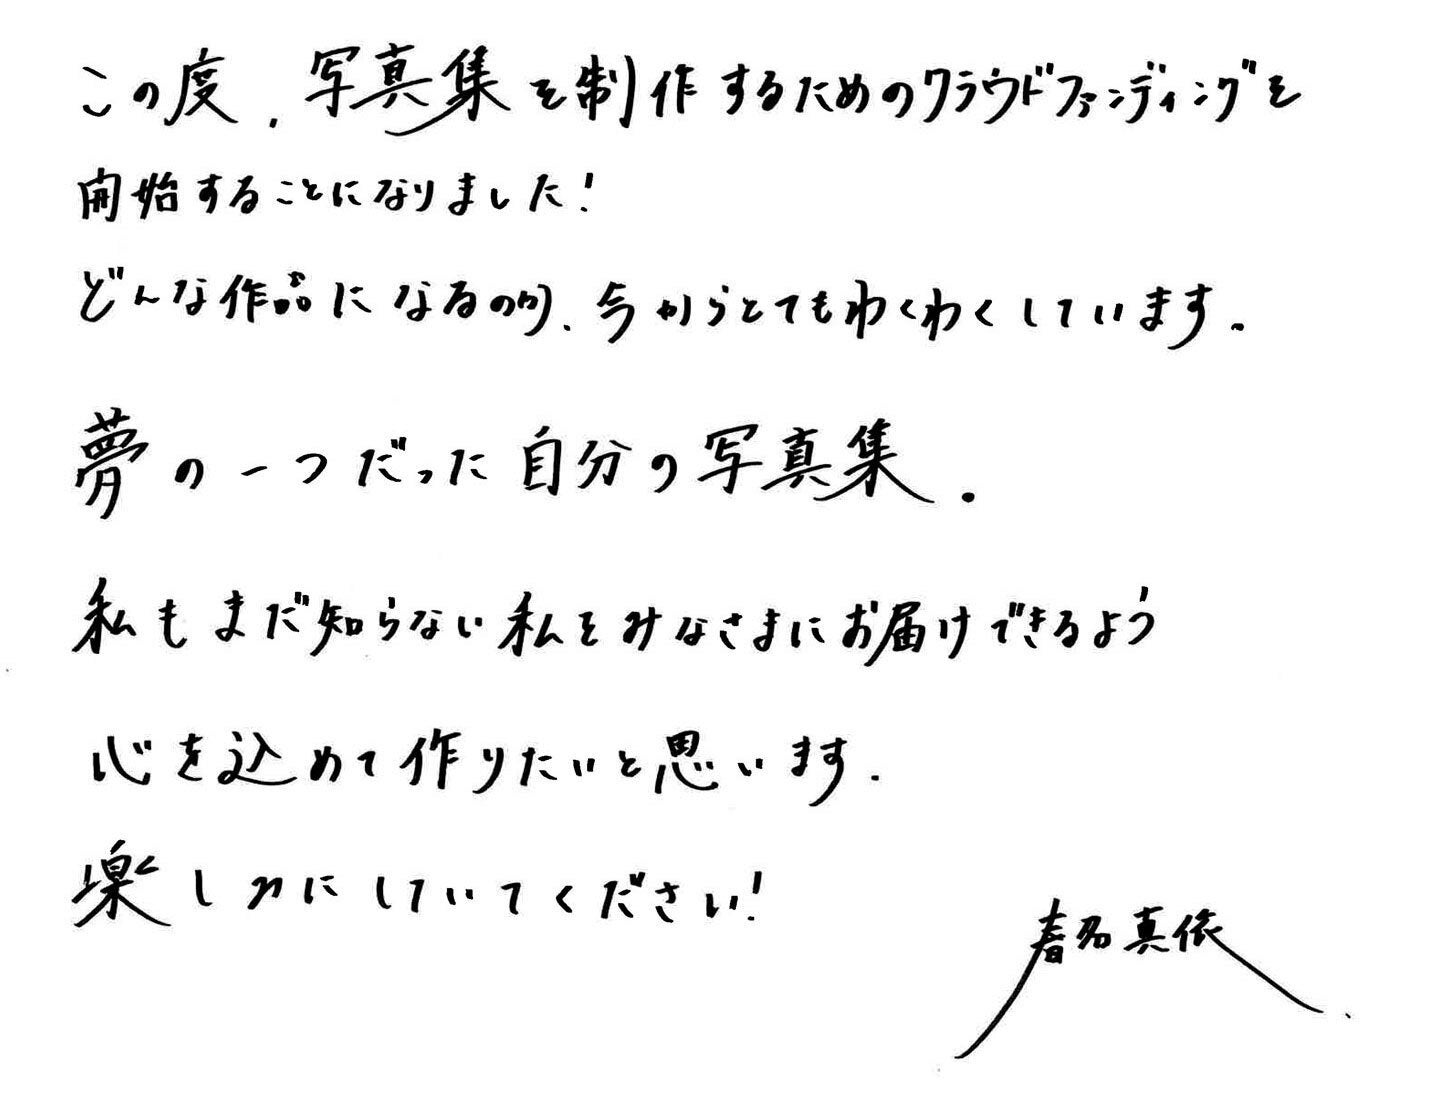 この度、写真集を制作するためのクラウドファンディングを
開始することになりました!
どんな作品になるのか、今からとてもわくわくしています。
夢の一つだった自分の写真集。
私もまだ知らない私をみなさまにお届けできるよう
心を込めて作りたいと思います。
楽しみにしていてください!
春名真依